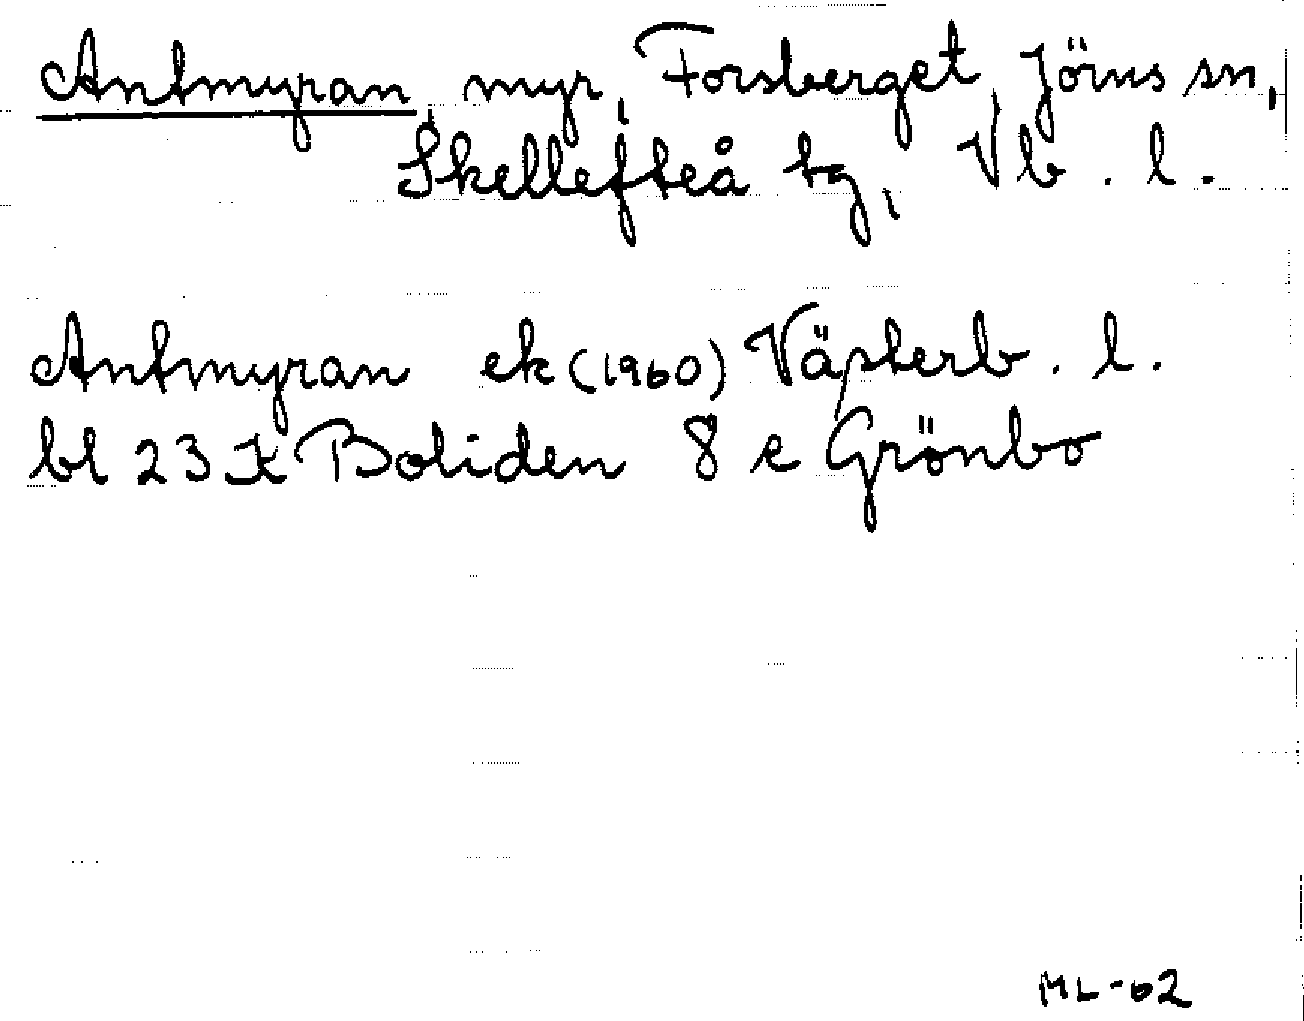 Antmyran, myr, Forsberget, Jörns sn,
Skellefteå tg, Vb. l.
Antmyran ek (1960) Västerb. l.
bl 23 K Boliden 8 e Grönbo
ML-62